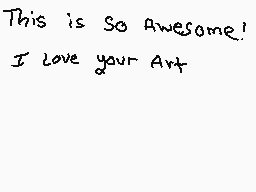 This is So Awesome!
I Love your Art